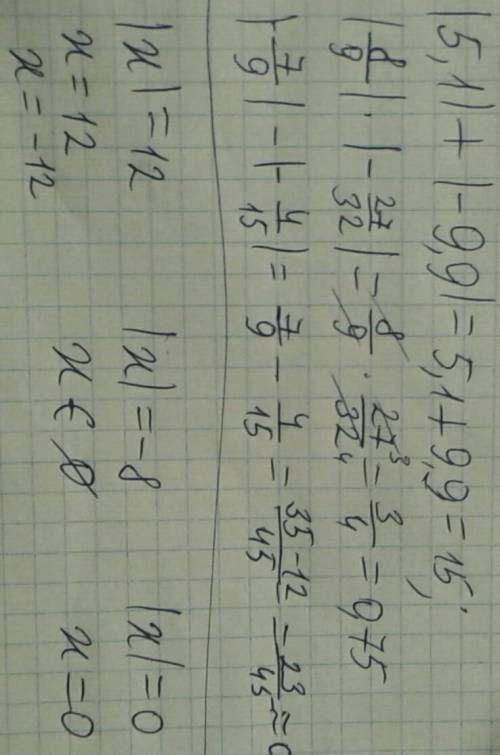 |5,1| + |-9,9| = 5,1 + 9,9 = 15;
|8/9| · |-27/32| = 8/9 · 27³/32₄ = 3/4 = 0,75
|-7/9| - |-4/15| = 7/9 - 4/15 = 35-12/45 = 23/45 ≈ 0
|x| = 12 |x| = -8 |x| = 0
x = 12 x ∈ ∅ x = 0
x = -12